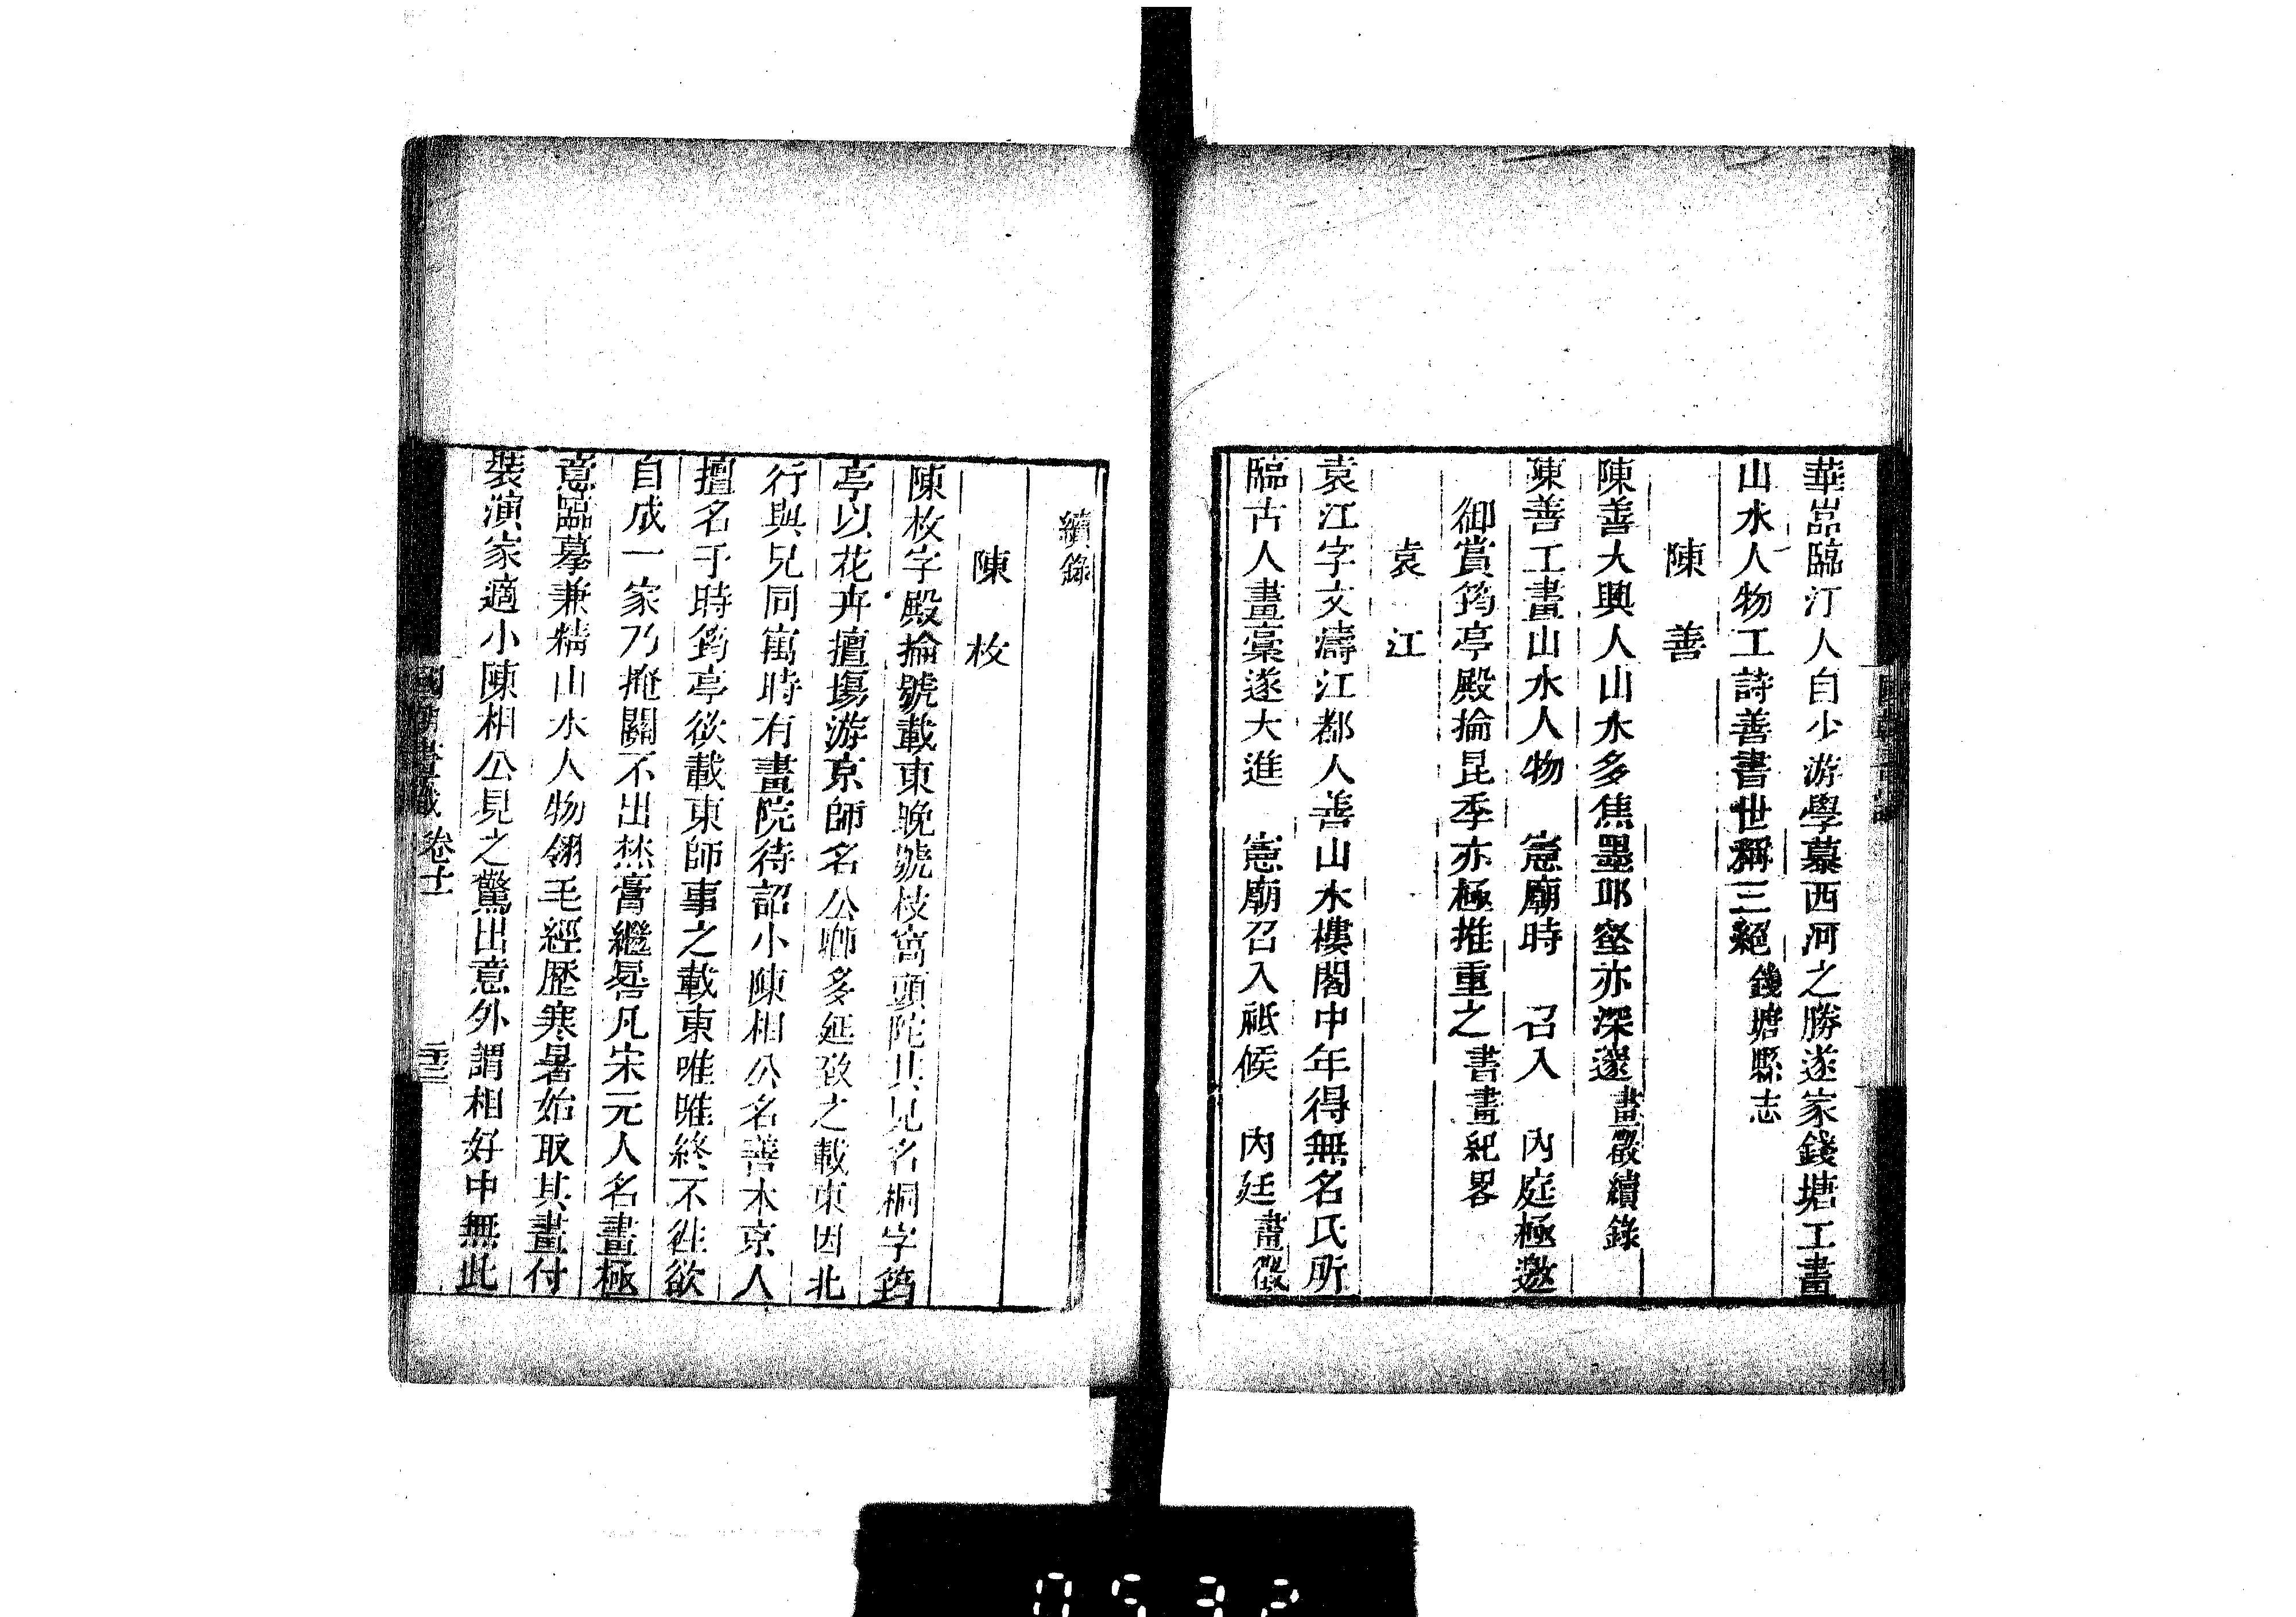 華嵒臨汀人自少游學慕西河之勝遂家錢塘工畫
山水人物工詩善書世稱三絕錢塘縣志
陳善
陳善大興人山水多焦墨邱壑亦深邃畫徵續錄
陳善工畫山水人物 憲廟時 召入 內庭極邀
御賞筠亭殿掄昆季亦極推重之書畫紀畧
袁江
袁江字文濤江都人善山水樓閣中年得無名氏所
臨古人畫稾遂大進 憲廟召入祗候 內廷畫徵
續錄
陳枚
陳枚字殿掄號載東晚號枝窩頭陀其兄名桐字筠
亭以花卉擅塲游京師名公卿多延致之載東因北
行與兄同寓時有畫院待詔小陳相公名善本京人
擅名于時筠亭欲載東師事之載東唯唯終不往欲
自成一家乃掩關不出焚膏繼晷凡宋元人名畫極
意臨摹兼精山水人物翎毛經歷寒暑始取其畫付
裝潢家適小陳相公見之驚出意外謂相好中無此
國朝畫識 卷十一 二十三